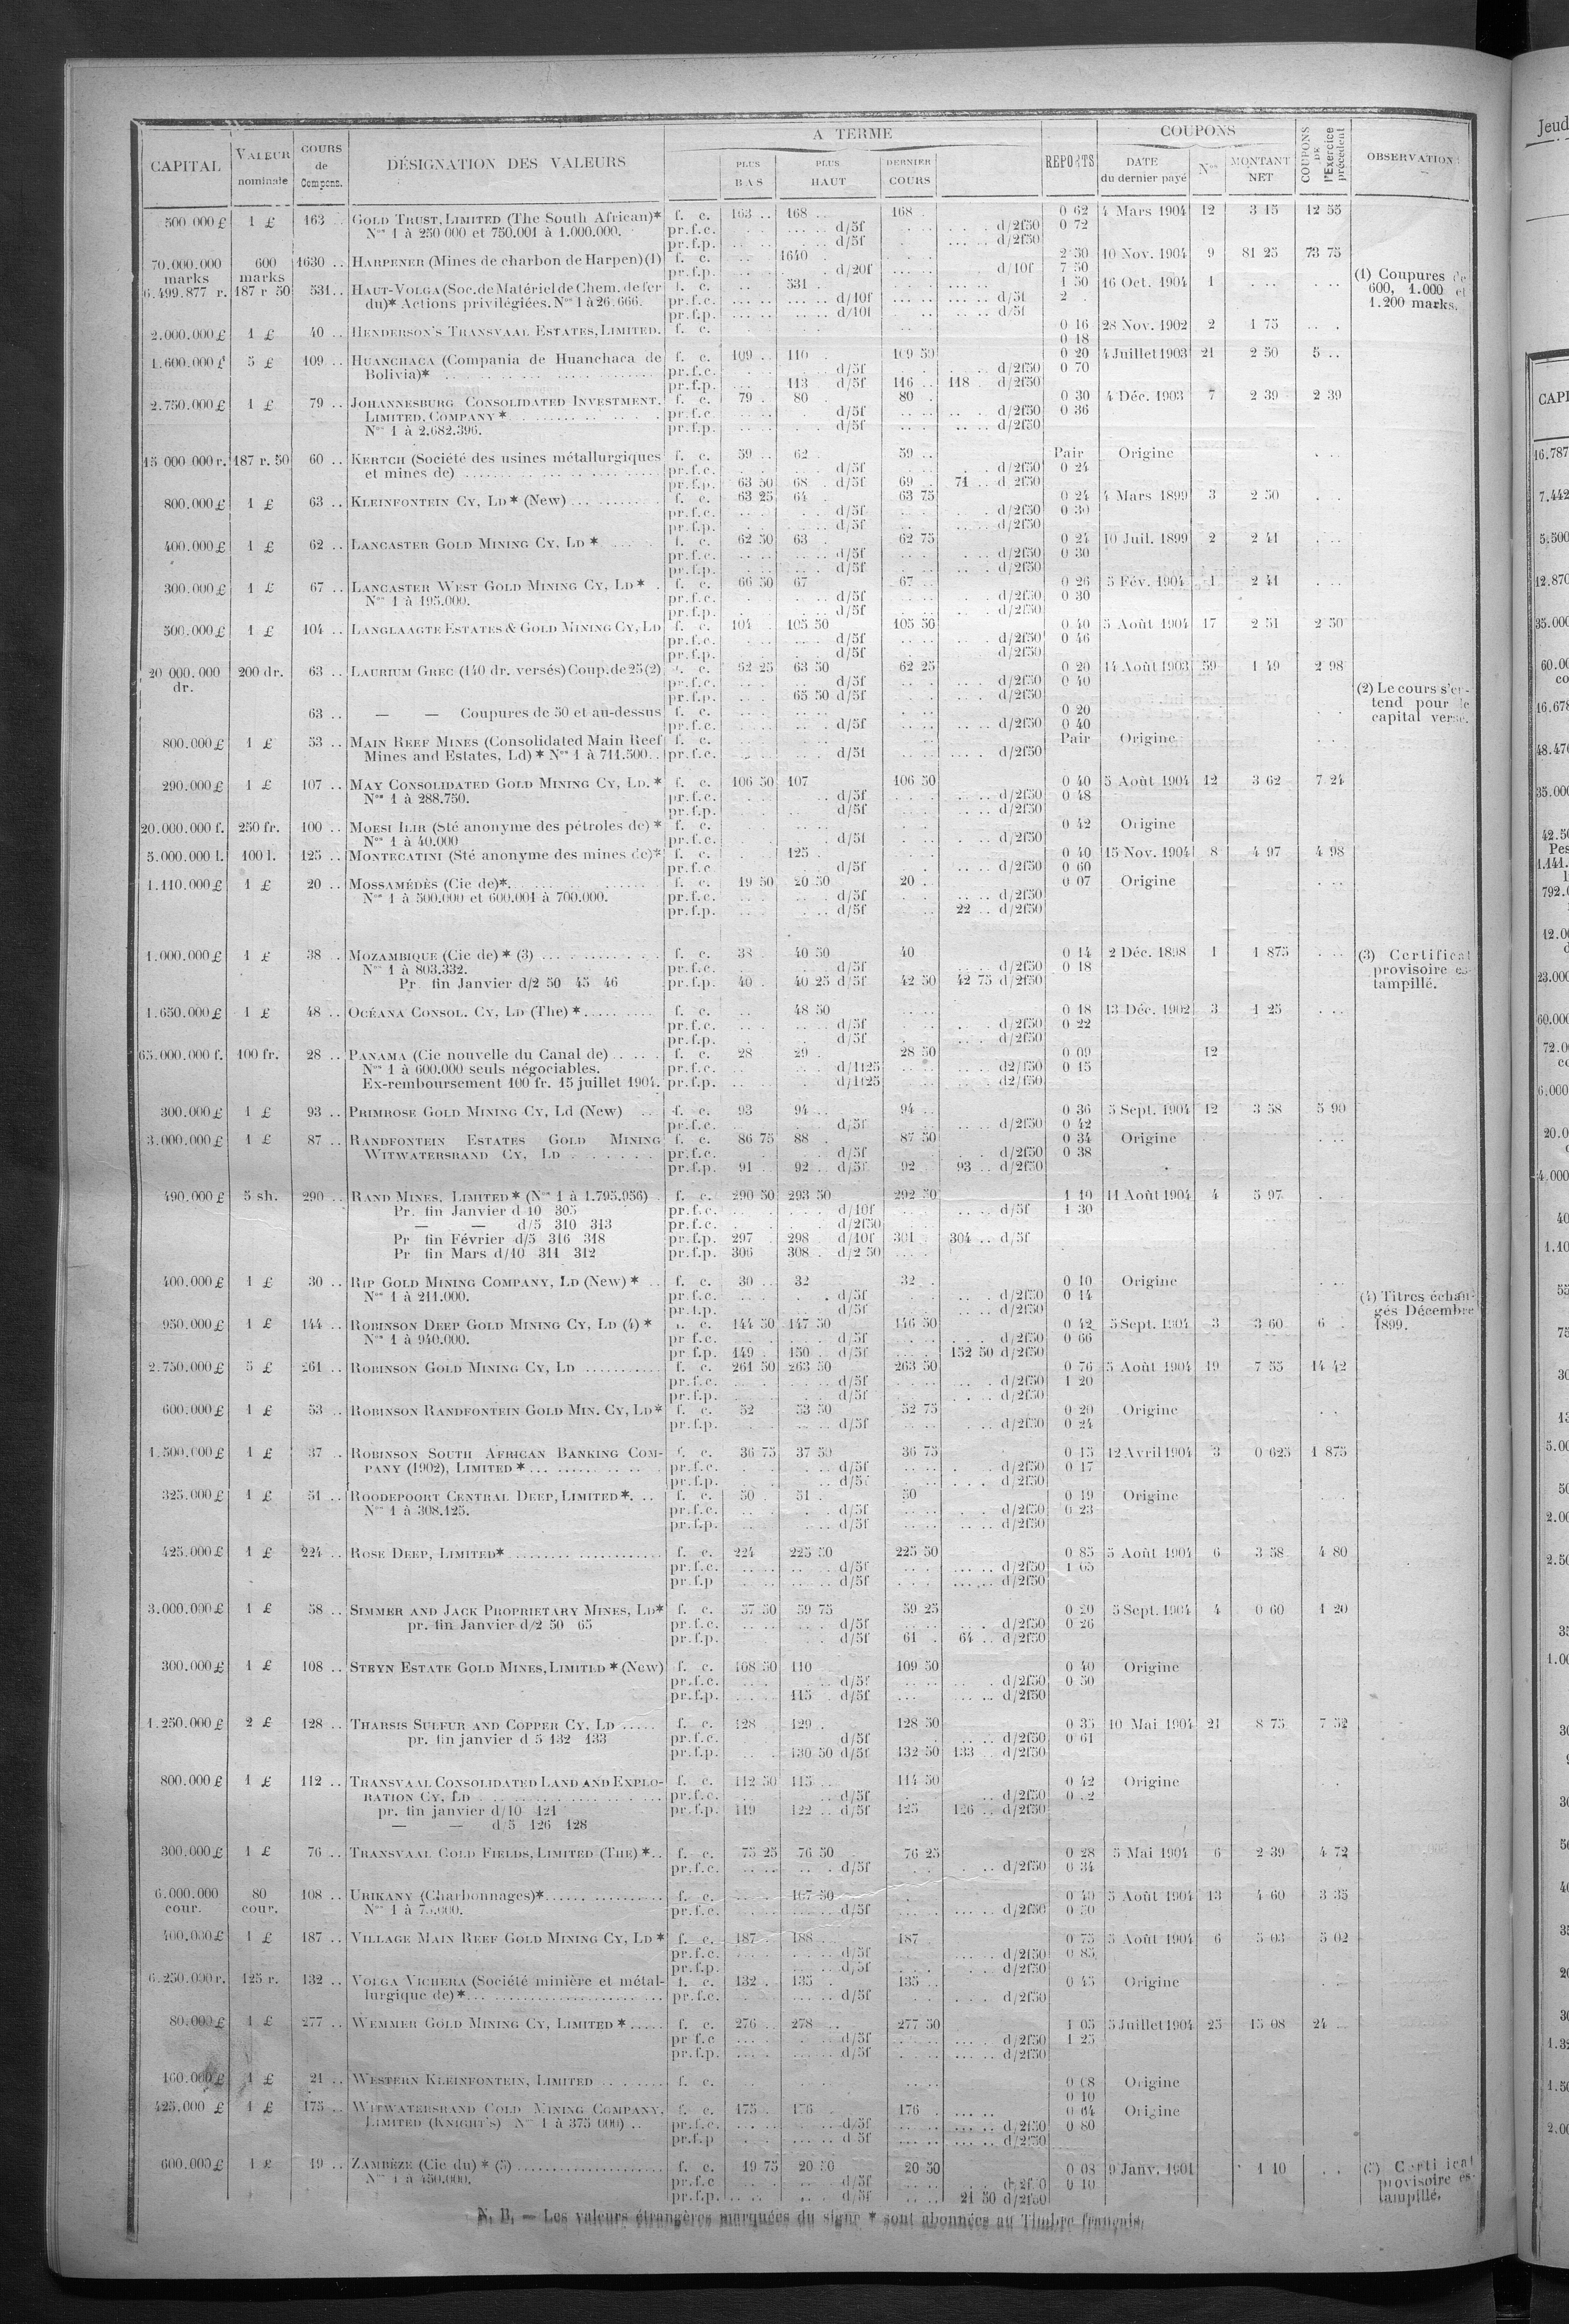 A TERME
COUPONS
CAPITAL VALEUR nominale COURS de Compens. DÉSIGNATION DES VALEURS PLUS BAS PLUS HAUT DERNIER COURS REPORTS DATE du dernier payé Nos MONTANT NET COUPONS DE l'Exercice précédent OBSERVATION
500 000 £ 1 £ 163 GOLD TRUST, LIMITED (The South African)* f. c. 163 .. 168 .. 168 . 0 62 4 Mars 1904 12 3 15 12 55
Nos 1 à 250 000 et 750.001 à 1.000.000. pr.f.c. d/5f d/2f50 0 72
pr.f.p. d/5f d/2f50
70.000.000 marks 600 marks 1630 .. HARPENER (Mines de charbon de Harpen)(1) f. c. 1640 2 50 10 Nov. 1904 9 81 25 73 75
pr.f.p. d/20f d/10f 7 50
(1) Coupures de 600, 1.000 et 1.200 marks.
6.499.877 r. 187 r 50 531 .. HAUT-VOLGA (Soc. de Matériel de Chem. de fer f. c. 531 . 1 50 16 Oct. 1904 1
du)* Actions privilégiées. Nos 1 à 26.666. pr.f.c. d/10f d/5f 2 .
pr.f.p. d/10f d/5f
2.000.000 £ 1 £ 40 .. HENDERSON'S TRANSVAAL ESTATES, LIMITED. f. c. 0 16 28 Nov. 1902 2 1 75
0 18
1.600.000 £ 5 £ 109 .. HUANCHACA (Compania de Huanchaca de f. c. 109 .. 110 . 109 50 0 20 4 Juillet 1903 21 2 50 5 ..
Bolivia)* pr.f.c. d/5f d/2f50 0 70
pr.f.p. 113 d/5f 116 .. 118 . d/2f50
2.750.000 £ 1 £ 79 .. JOHANNESBURG CONSOLIDATED INVESTMENT. f. c. 79 . 80 . 80 . 0 30 4 Déc. 1903 7 2 39 2 39
LIMITED, COMPANY * pr.f.c. d/5f d/2f50 0 36
Nos 1 à 2.682.396. pr.f.p. d/5f d/2f50
15 000 000 r. 187 r. 50 60 .. KERTCH (Société des usines métallurgiques f. c. 59 .. 62 . 59 .. Pair Origine
et mines de) pr.f.c. d/5f d/2f50 0 24
pr.f.p. 63 50 68 . d/5f 69 . 71 .. d 2f50
800.000 £ 1 £ 63 .. KLEINFONTEIN CY, LD * (New) f. c. 63 25 64 . 63 75 0 24 4 Mars 1899 3 2 50
pr.f.c. d/5f d/2f50 0 30
pr.f.p. d/5f d/2f50
400.000 £ 1 £ 62 .. LANCASTER GOLD MINING CY, LD * f. c. 62 50 63 . 62 75 0 24 10 Juil. 1899 2 2 41
pr.f.c. d/5f d/2f50 0 30
pr.f.p. d/5f d/2f50
300.000 £ 1 £ 67 .. LANCASTER WEST GOLD MINING CY, LD * f. c. 66 50 67 67 .. 0 26 5 Fév. 1904 1 2 41
Nos 1 à 195.000. pr.f.c. d/5f d/2f50 0 30
pr.f.p. d/5f d/2f50
500.000 £ 1 £ 104 .. LANGLAAGTE ESTATES & GOLD MINING CY, LD f. c. 104 .. 105 50 105 50 0 40 5 Août 1904 17 2 51 2 50
pr.f.c. d/5f d/2f50 0 46
pr.f.p. d/5f d/2f50
20 000.000 dr. 200 dr. 63 .. LAURIUM GREC (140 dr. versés) Coup. de 25 (2) f. c. 62 25 63 50 62 25 0 20 14 Août 1903 59 1 49 2 98
pr.f.c. d/5f d/2f50 0 40
pr.f.p. 65 50 d/5f d/2f50
(2) Le cours s'en-tend pour le capital versé.
63 .. — — Coupures de 50 et au-dessus f. c. 0 20
pr.f.c. d/5f d/2f50 0 40
800.000 £ 1 £ 53 .. MAIN REEF MINES (Consolidated Main Reef f. c. Pair Origine
Mines and Estates, Ld) * Nos 1 à 711.500.. pr.f.c. d/5f d/2f50
290.000 £ 1 £ 107 .. MAY CONSOLIDATED GOLD MINING CY, LD. * f. c. 106 50 107 106 50 0 40 5 Août 1904 12 3 62 7 24
Nos 1 à 288.750. pr.f.c. d/5f d/2f50 0 48
pr.f.p. d/5f d/2f50
20.000.000 f. 250 fr. 100 .. MOESI ILIR (Sté anonyme des pétroles de) * f. c. 0 42 Origine
Nos 1 à 40.000 pr.f.c. d/5f d/2f50
5.000.000 l. 100 l. 125 .. MONTECATINI (Sté anonyme des mines de)* f. c. 125 . 0 40 15 Nov. 1904 8 4 97 4 98
pr.f.c. d/5f d/2f50 0 60
1.110.000 £ 1 £ 20 .. MOSSAMÉDÈS (Cie de)* f. c. 19 50 20 50 20 .. 0 07 Origine
Nos 1 à 500.000 et 600.001 à 700.000. pr.f.c. d/5f d/2f50
pr.f.p. d/5f 22 .. d/2f50
1.000.000 £ 1 £ 38 . MOZAMBIQUE (Cie de) * (3) f. c. 38 . 40 50 40 0 14 2 Déc. 1898 1 1 875
Nos 1 à 803.332. pr.f.c. d/5f d/2f50 0 18
Pr fin Janvier d/2 50 45 46 pr.f.p. 40 . 40 25 d/5f 42 50 42 75 d/2f50
(3) Certificat provisoire es-tampillé.
1.650.000 £ 1 £ 48 .. OCÉANA CONSOL. CY, LD (The) * f. c. 48 50 0 18 13 Déc. 1902 3 1 25
pr.f.c. d/5f d/2f50 0 22
pr.f.p. d/5f d/2f50
65.000.000 f. 100 fr. 28 .. PANAMA (Cie nouvelle du Canal de) f. c. 28 29 . 28 50 0 09 12
Nos 1 à 600.000 seuls négociables. pr.f.c. d/1125 d2/f50 0 15
Ex-remboursement 100 fr. 15 juillet 1904. pr.f.p. d/1125 d2/f50
300.000 £ 1 £ 93 .. PRIMROSE GOLD MINING CY, Ld (New) f. c. 93 94 .. 94 .. 0 36 5 Sept. 1904 12 3 58 5 90
pr.f.c. d/5f d/2f50 0 42
3.000.000 £ 1 £ 87 .. RANDFONTEIN ESTATES GOLD MINING f. c. 86 75 88 . 87 50 0 34 Origine
WITWATERSRAND CY, LD pr.f.c. d/5f d/2f50 0 38
pr.f.p. 91 92 .. d/5f 92 . 93 .. d/2f50
490.000 £ 5 sh. 290 .. RAND MINES, LIMITED * (Nos 1 à 1.795.956) f. c. 290 50 293 50 292 50 1 10 11 Août 1904 4 5 97
Pr. fin Janvier d 10 305 pr.f.c. d/10f d/5f 1 30
— — d/5 310 313 pr.f.c. d/2f50
Pr fin Février d/5 316 318 pr.f.p. 297 298 d/10f 301 . 304 .. d/5f
Pr fin Mars d/10 311 312 pr.f.p. 306 308 . d/2 50
400.000 £ 1 £ 30 .. RIP GOLD MINING COMPANY, LD (New) * f. c. 30 .. 32 32 . 0 10 Origine
Nos 1 à 211.000. pr.f.c. d/5f d/2f50 0 14
pr.f.p. d/5f d/2f50
(4) Titres échan-gés Décembre 1899.
950.000 £ 1 £ 144 .. ROBINSON DEEP GOLD MINING CY, LD (4) * f. c. 144 50 147 50 146 50 0 42 5 Sept. 1904 3 3 60 6 .
Nos 1 à 940.000. pr.f.c. d/5f d/2f50 0 66
pr f.p. 149 . 150 .. d/5f 152 50 d/2f50
2.750.000 £ 5 £ 261 .. ROBINSON GOLD MINING CY, LD f. c. 261 50 263 50 263 50 0 76 5 Août 1904 19 7 55 14 42
pr.f.c. d/5f d/2f50 1 20
pr.f.p. d/5f d/2f50
600.000 £ 1 £ 53 .. ROBINSON RANDFONTEIN GOLD MIN. CY, LD * f. c. 52 53 50 52 75 0 20 Origine
pr.f.p. d/5f d/2f50 0 24
1.500.000 £ 1 £ 37 .. ROBINSON SOUTH AFRICAN BANKING COM- f. c. 36 75 37 50 36 75 0 15 12 Avril 1904 3 0 625 1 875
PANY (1902), LIMITED * pr.f.c. d/5f d/2f50 0 17
pr.f.p. d/5f d/2f50
325.000 £ 1 £ 51 .. ROODEPOORT CENTRAL DEEP, LIMITED * f. c. 50 . 51 . 50 0 19 Origine
Nos 1 à 308.125. pr.f.c. d/5f d/2f50 0 23
pr.f.p. d/5f d/2f50
425.000 £ 1 £ 224 .. ROSE DEEP, LIMITED * f. c. 224 225 50 225 50 0 85 5 Août 1904 6 3 58 4 80
pr.f.c. d/5f d/2f50 1 65
pr.f.p d/5f d/2f50
3.000.000 £ 1 £ 58 .. SIMMER AND JACK PROPRIETARY MINES, LD * f. c. 57 50 59 75 59 25 0 20 5 Sept. 1904 4 0 60 1 20
pr. fin Janvier d/2 50 65 pr.f.c. d/5f d/2f50 0 26
pr.f.p. d/5f 61 . 64 .. d/2f50
300.000 £ 1 £ 108 .. STEYN ESTATE GOLD MINES, LIMITED * (New) f. c. 108 50 110 109 50 0 40 Origine
pr.f.c. d/5f d/2f50 0 50
pr.f.p. 115 d/5f d/2f50
1.250.000 £ 2 £ 128 .. THARSIS SULFUR AND COPPER CY, LD f. c. 128 129 . 128 50 0 35 10 Mai 1904 21 8 75 7 52
pr. fin janvier d 5 132 133 pr.f.c. d/5f d/2f50 0 61
pr.f.p. 130 50 d/5f 132 50 133 .. d/2f50
800.000 £ 1 £ 112 .. TRANSVAAL CONSOLIDATED LAND AND EXPLO- f. c. 112 50 115 .. 114 50 0 42 Origine
RATION CY, LD pr.f.c. d/5f d/2f50
pr. fin janvier d/10 121 pr.f.p. 119 122 .. d/5f 125 126 .. d/2f50
— — d/5 126 128
300.000 £ 1 £ 76 .. TRANSVAAL GOLD FIELDS, LIMITED (THE) * f. c. 75 25 76 50 76 25 0 28 5 Mai 1904 6 2 39 4 72
pr.f.c. d/5f d/2f50 0 34
6.000.000 cour. 80 cour. 108 .. URIKANY (Charbonnages)* f. c. 107 50 0 40 5 Août 1904 13 4 60 3 35
Nos 1 à 75.000. pr.f.c. d/5f d/2f50 0 50
400.000 £ 1 £ 187 .. VILLAGE MAIN REEF GOLD MINING CY, LD * f. c. 187 . 188 187 0 75 5 Août 1904 6 5 03 5 02
pr.f.c. d/5f d/2f50 0 85
pr.f.p. d/5f d/2f50
6.250.000 r. 125 r. 132 .. VOLGA VICHERA (Société minière et métal- f. c. 132 . 135 . 135 .. 0 45 Origine
lurgique de) * pr.f.c. d/5f d/2f50
80.000 £ 1 £ 277 .. WEMMER GOLD MINING CY, LIMITED * f. c. 276 .. 278 .. 277 50 1 05 5 Juillet 1904 25 15 08 24 ..
pr f.c d/5f d/2f50 1 25
pr.f.p. d/5f d/2f50
160.000 £ 1 £ 21 .. WESTERN KLEINFONTEIN, LIMITED f. c. 0 08 Origine
0 10
425.000 £ 1 £ 175 .. WITWATERSRAND GOLD MINING COMPANY, f. c. 175 .. 176 176 . 0 64 Origine
LIMITED (KNIGHT'S) Nos 1 à 375 000) pr.f.c. d/5f d/2f50 0 80
pr.f.p d 5f d/2f50
600.000 £ 1 £ 19 .. ZAMBÈZE (Cie du) * (5) f. c. 19 75 20 50 20 50 0 08 9 Janv. 1901 1 10
Nos 1 à 450.000. pr.f.c d/5f 0 10
pr.f.p. d/5f 21 50 d/2f50
(5) Certificat provisoire es-tampillé.
N. B. — Les valeurs étrangères marquées du signe * sont abonnées au Timbre français.
Jeud
CAPI
16.787
7.442
5.500
12.870
35.000
60.00
16.678
48.470
35.000
42.50
Pes
1.141.
792.0
12.00
23.000
60.000
72.0
6.000
20.0